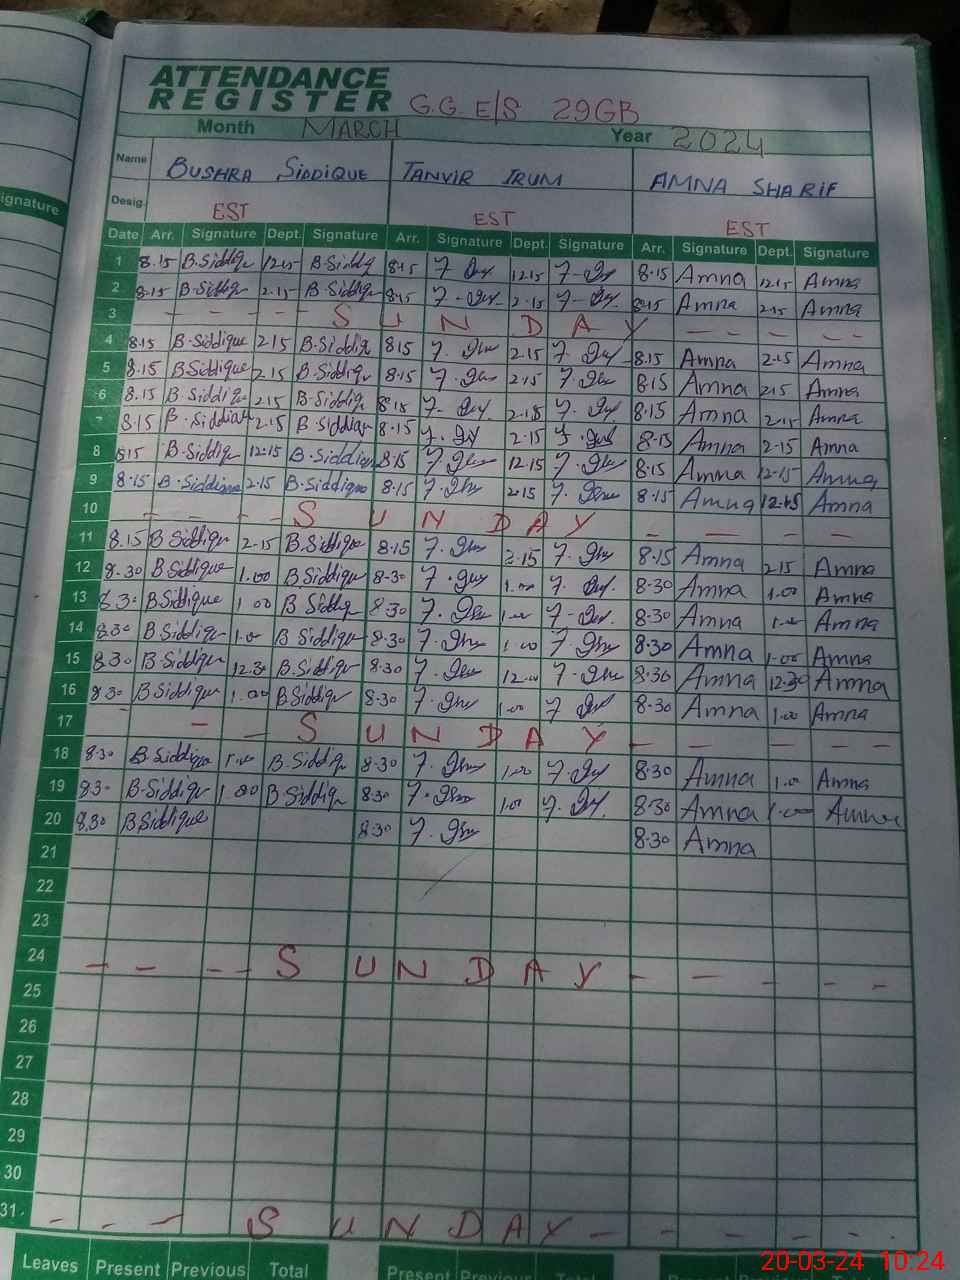 ignature
ATTENDANCE
REGISTER G.G. E/S 29GB
Month MARCH Year 2024
Name BUSHRA SIDDIQUE TANVIR IRUM AMNA SHARIF
Desig. EST EST EST
Date Arr. Signature Dept. Signature Arr. Signature Dept. Signature Arr. Signature Dept. Signature
1 8.15 B.Siddiq 12.15 B.Siddiq 8.15 12.15 8.15 Amna 12.15 Amna
2 8.15 B.Siddiq 2.15 B.Siddiq 8.15 2.15 8.15 Amna 2.15 Amna
3 - - - - - S U N D A Y - - - -
4 8.15 B.Siddique 2.15 B.Siddiq 8.15 2.15 8.15 Amna 2.15 Amna
5 8.15 B.Siddique 2.15 B.Siddiq 8.15 2.15 8.15 Amna 2.15 Amna
6 8.15 B.Siddiq 2.15 B.Siddiq 8.15 2.15 8.15 Amna 2.15 Amna
7 8.15 B.Siddiq 2.15 B.Siddiq 8.15 2.15 8.15 Amna 2.15 Amna
8 8.15 B.Siddiq 12.15 B.Siddiq 8.15 12.15 8.15 Amna 12.15 Amna
9 8.15 B.Siddique 2.15 B.Siddique 8.15 2.15 8.15 Amna 12.15 Amna
10 - - - - S U N D A Y - - - -
11 8.15 B Siddiqu 2.15 B.Siddique 8.15 2.15 8.15 Amna 2.15 Amna
12 8.30 B Siddique 1.00 B Siddique 8.30 1.00 8.30 Amna 1.00 Amna
13 8.30 B Siddique 1.00 B Siddiq 8.30 1.00 8.30 Amna 1.00 Amna
14 8.30 B Siddiqu 1.00 B Siddiqu 8.30 1.00 8.30 Amna 1.00 Amna
15 8.30 B Siddiqu 12.30 B.Siddiqu 8.30 12.00 8.30 Amna 12.30 Amna
16 8.30 B Siddiqu 1.00 B Siddiqu 8.30 1.00 8.30 Amna 1.00 Amna
17 - - S U N D A Y - - - - -
18 8.30 B.Siddique 1.00 B.Siddiq 8.30 1.00 8.30 Amna 1.00 Amna
19 8.30 B.Siddiqu 1.00 B Siddiqu 8.30 1.00 8.30 Amna 1.00 Amna
20 8.30 B Siddique 8.30 8.30 Amna
21
22
23
24 - - - - S U N D A Y - - - - -
25
26
27
28
29
30
31 - - - S U N D A Y - - - - -
Leaves Present Previous Total Present Previous Total
20-03-24 10:24